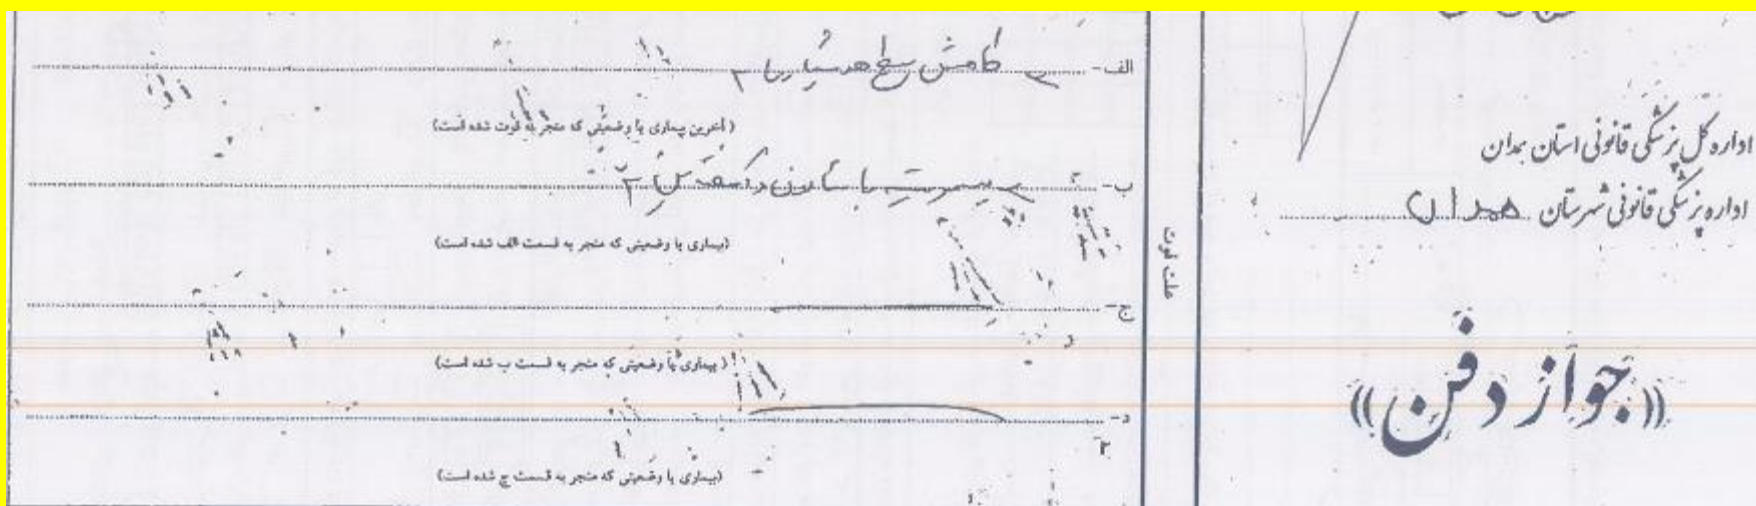 اداره کل پزشکی قانونی استان همدان
اداره پزشکی قانونی شهرستان همدان
«جواز دفن»
علت فوت
الف- کاهش سطح هوشیاری
(آخرین بیماری یا وضعیتی که منجر به فوت شده است)
ب-
(بیماری یا وضعیتی که منجر به قسمت الف شده است)
ج-
(بیماری یا وضعیتی که منجر به قسمت ب شده است)
د-
۲
(بیماری یا وضعیتی که منجر به قسمت ج شده است)